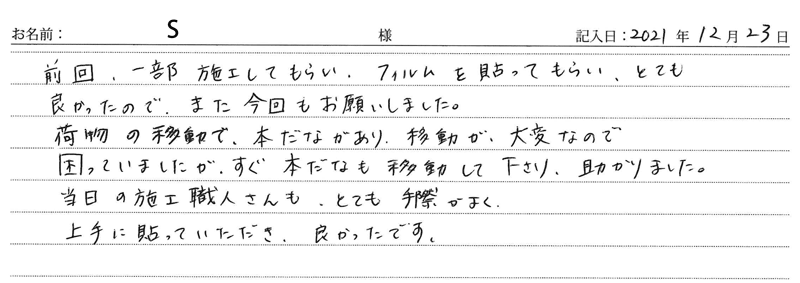 お名前： S 様 記入日：2021年12月23日
前回、一部施工してもらい、フィルムを貼ってもらい、とても
良かったので、また今回もお願いしました。
荷物の移動で、本だながあり、移動が、大変なので
困っていましたが、すぐ本だなも移動して下さり、助かりました。
当日の施工職人さんも、とても手際がよく、
上手に貼っていただき、良かったです。